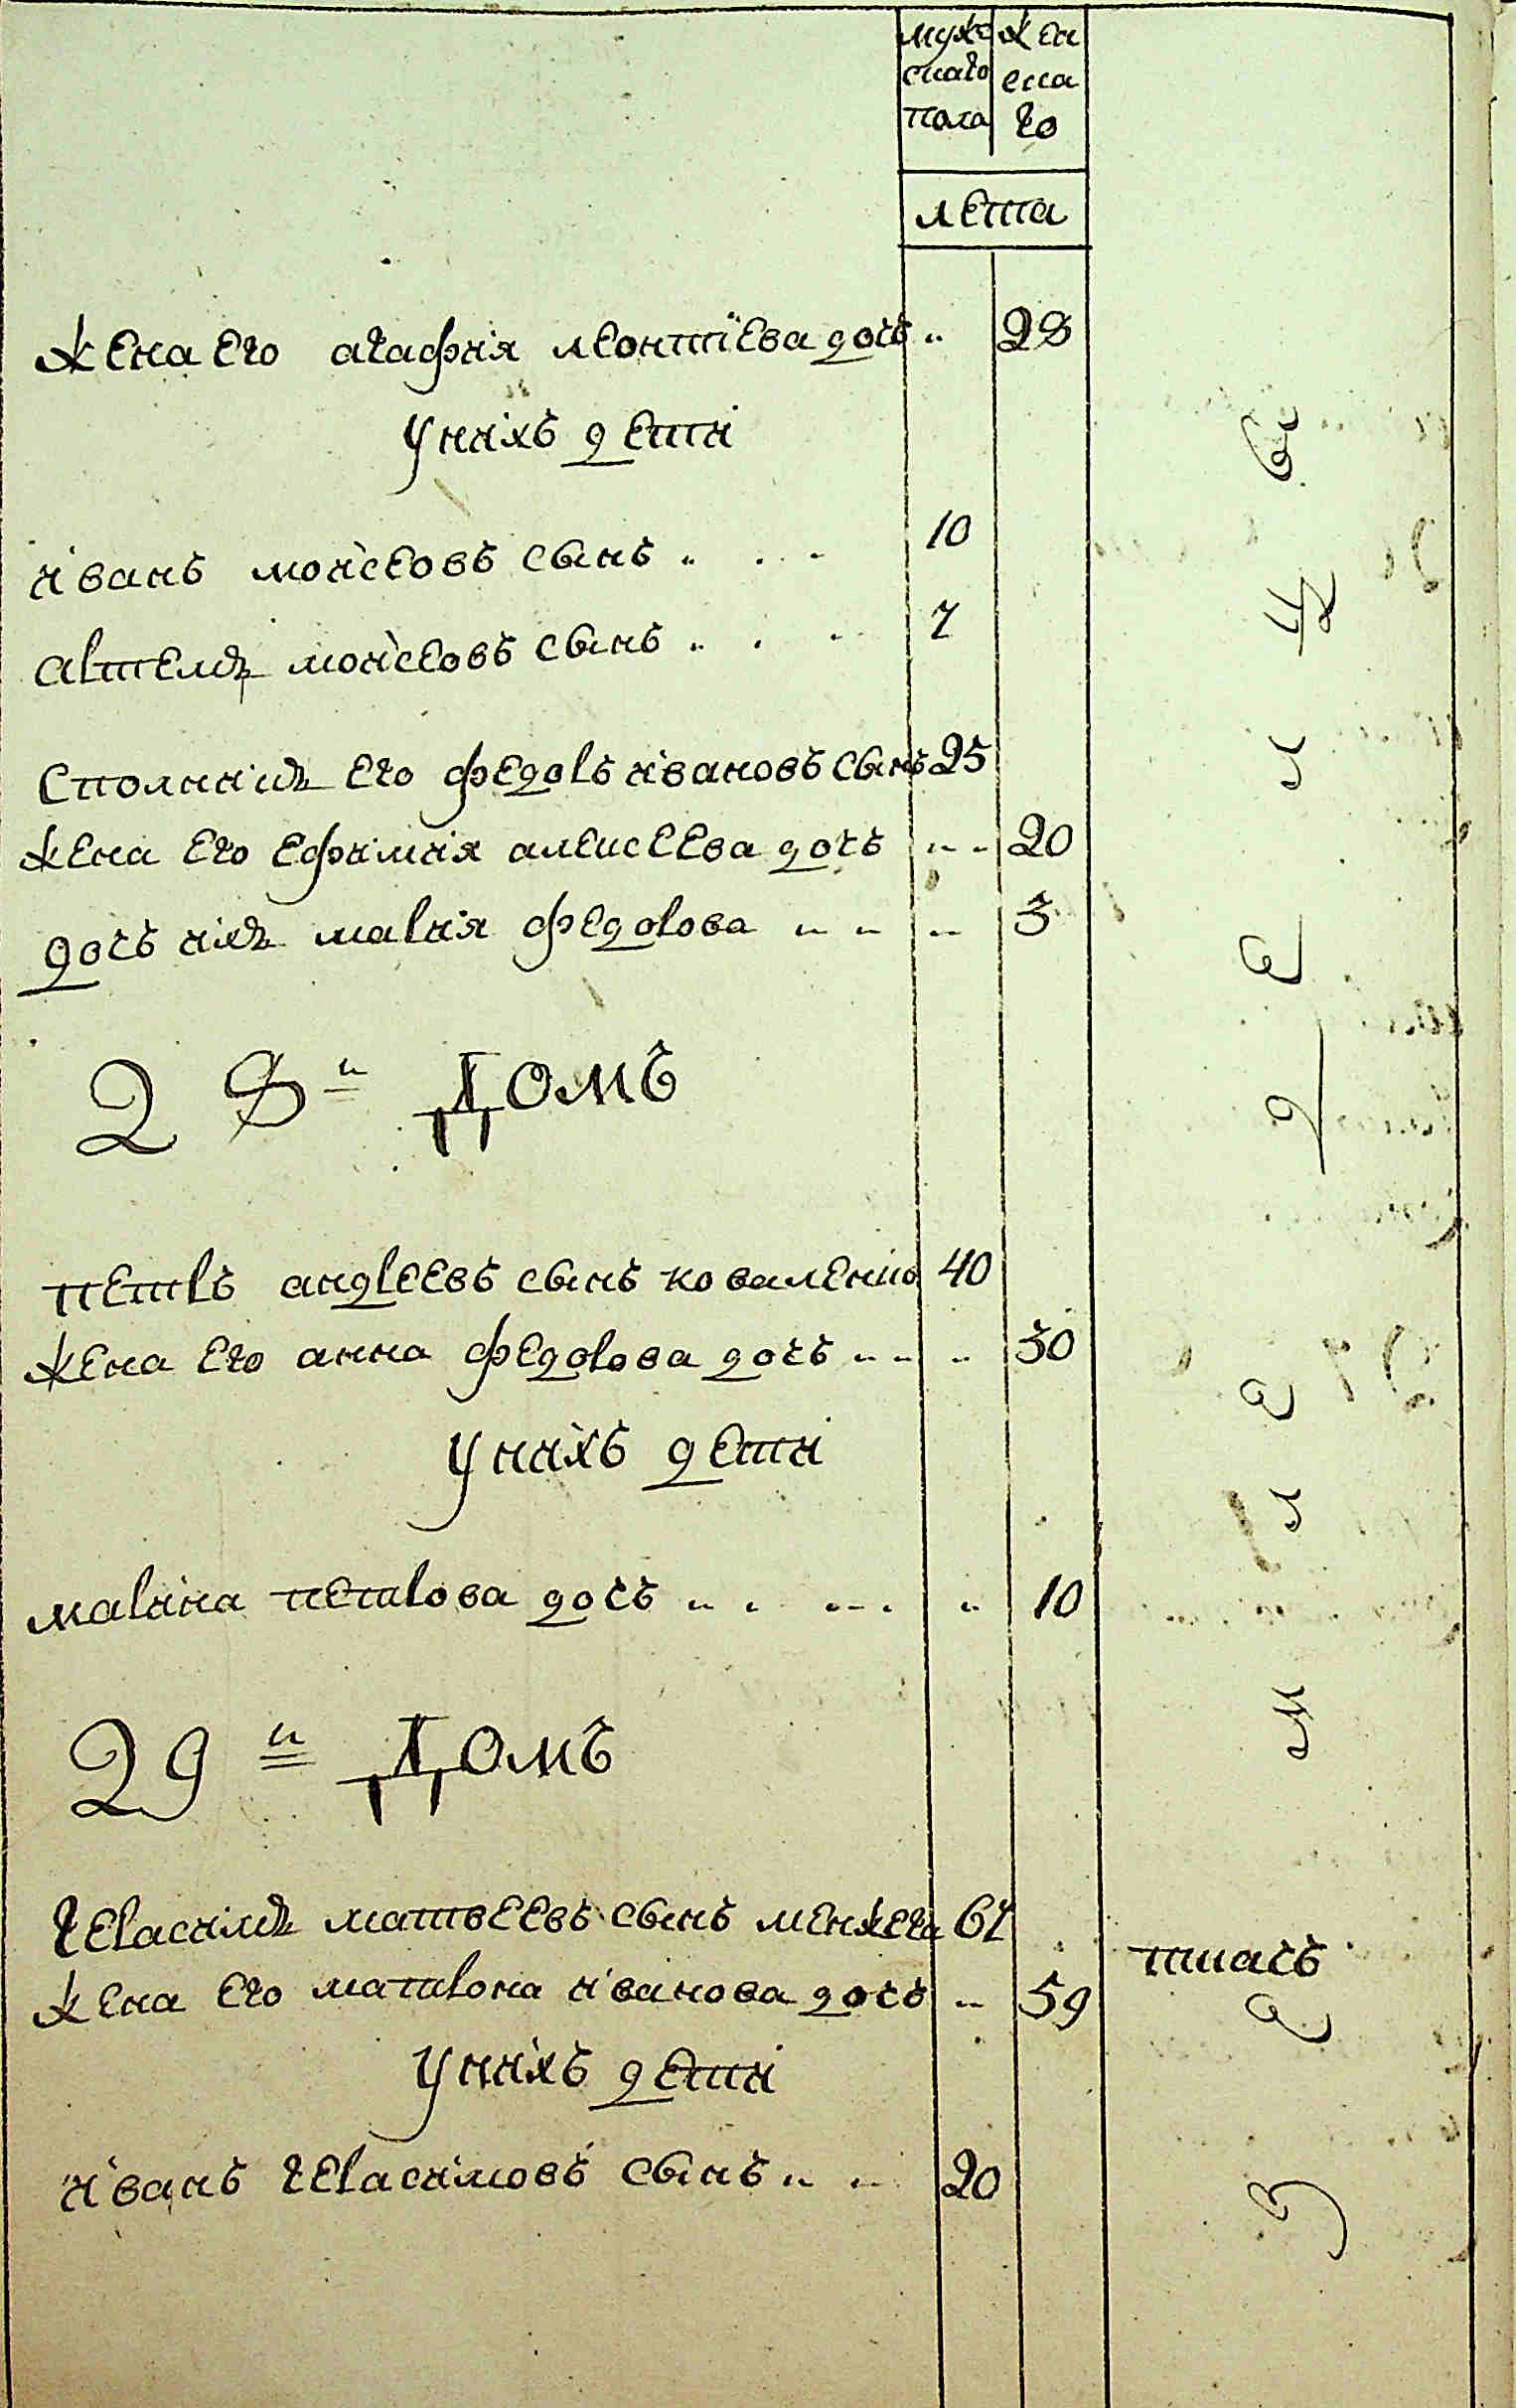 мужескаго пола
женскаго
лета
жена его агафия леонтїева дочь 28
У нихъ дети
иванъ моисеовъ сынъ 10
артемъ моисеовъ сынъ 7
Споникъ его федоръ ивановъ сынъ 25
жена его ефимия алексеева дочь 20
дочь ихъ мария федорова 3
28 й Домъ
петръ андреевъ сынъ коваленко 40
жена его анна федорова дочь 30
У нихъ дети
марина петрова дочь 10
29 й Домъ
герасимъ матвеевъ сынъ менжега 67
жена его матрона иванова дочь 59
У нихъ дети
иванъ герасимовъ сынъ 20
ткачь